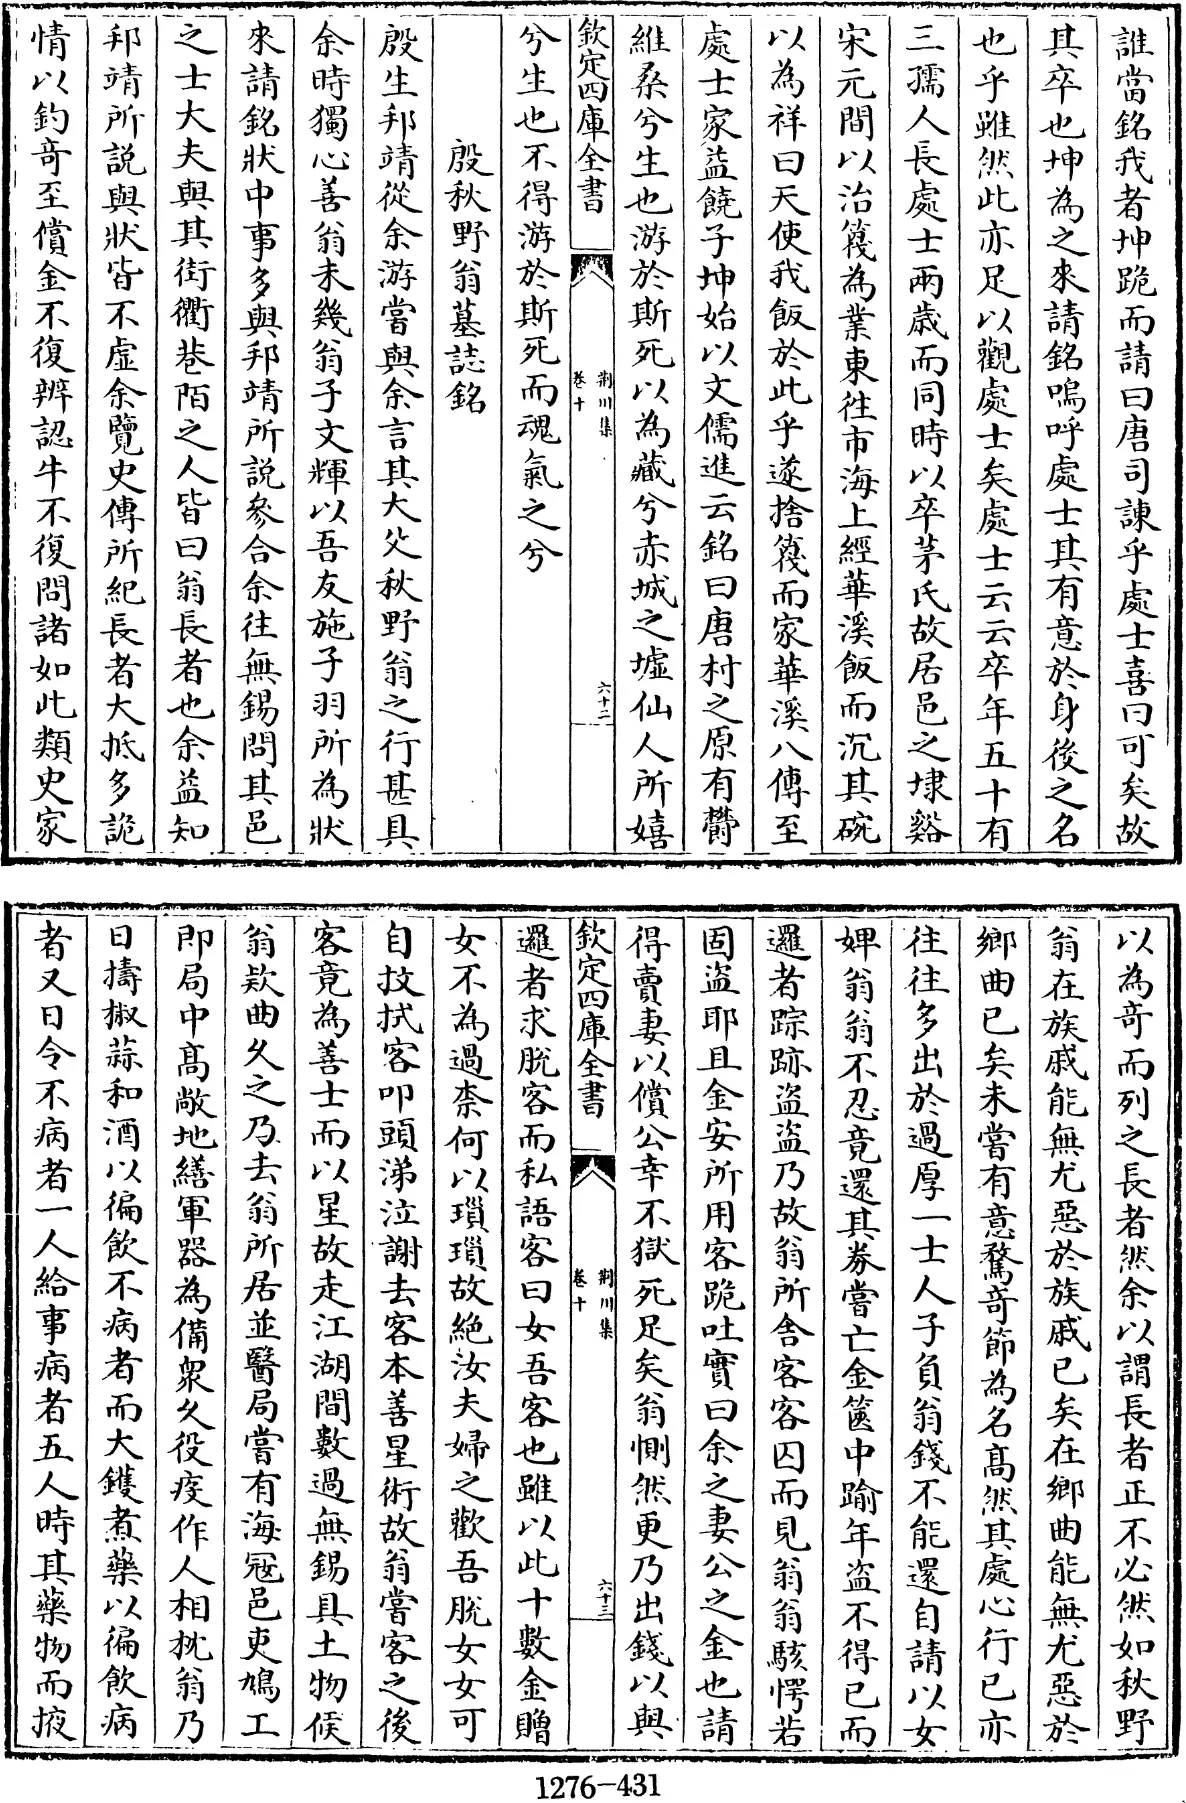 誰當銘我者坤跪而請曰唐司諌乎處士喜曰可矣故
其卒也坤為之來請銘嗚呼處士其有意於身後之名
也乎雖然此亦足以觀處士矣處士云云卒年五十有
三孺人長處士兩歳而同時以卒茅氏故居邑之埭谿
宋元間以治篾為業東徃市海上經華溪飯而沉其碗
以為祥曰天使我飯於此乎遂捨篾而家華溪八傳至
處士家益饒子坤始以文儒進云銘曰唐村之原有欝
維桑兮生也游於斯死以為藏兮赤城之墟仙人所嬉
欽定四庫全書
荆川集
卷十
六十二
兮生也不得游於斯死而魂氣之兮
殷秋野翁墓誌銘
殷生邦靖從余游嘗與余言其大父秋野翁之行甚具
余時獨心善翁未幾翁子文輝以吾友施子羽所為狀
來請銘狀中事多與邦靖所説參合余往無錫問其邑
之士大夫與其街衢巷陌之人皆曰翁長者也余益知
邦靖所説與狀皆不虚余覽史傳所紀長者大抵多詭
情以釣竒至償金不復辨認牛不復問諸如此類史家
以為竒而列之長者然余以謂長者正不必然如秋野
翁在族戚能無尤惡於族戚已矣在鄉曲能無尤惡於
鄉曲已矣未嘗有意騖竒節為名髙然其處心行已亦
往往多出於過厚一士人子負翁錢不能還自請以女
婢翁翁不忍竟還其券嘗亡金篋中踰年盜不得已而
邏者踪跡盜盜乃故翁所舍客客囚而見翁翁駭愕若
固盜耶且金安所用客跪吐實曰余之妻公之金也請
得賣妻以償公幸不獄死足矣翁惻然更乃出錢以與
欽定四庫全書
荆川集
卷十
六十三
邏者求脱客而私語客曰女吾客也雖以此十數金贈
女不為過柰何以瑣瑣故絶汝夫婦之歡吾脱女女可
自抆拭客叩頭涕泣謝去客本善星術故翁嘗客之後
客竟為善士而以星故走江湖間數過無錫具土物候
翁欵曲乆之乃去翁所居並醫局嘗有海冦邑吏鳩工
即局中髙敞地繕軍器為備衆乆役疫作人相枕翁乃
日擣椒蒜和酒以徧飲不病者而大鑊煮藥以徧飲病
者又日令不病者一人給事病者五人時其藥物而掖
1276-431